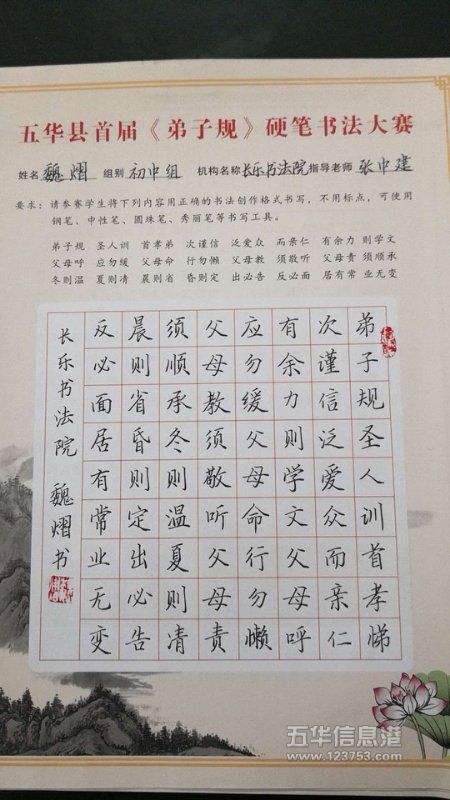 五华县首届《弟子规》硬笔书法大赛
姓名 魏熠 组别 初中组 机构名称 长乐书法院 指导老师 张中建
要求：请参赛学生将下列内容用正确的书法创作格式书写，不用标点，可使用
钢笔、中性笔、圆珠笔、秀丽笔等书写工具。
弟子规 圣人训 首孝弟 次谨信 泛爱众 而亲仁 有余力 则学文
父母呼 应勿缓 父母命 行勿懒 父母教 须敬听 父母责 须顺承
冬则温 夏则凊 晨则省 昏则定 出必告 反必面 居有常 业无变
弟子规圣人训首孝悌
次谨信泛爱众而亲仁
有余力则学文父母呼
应勿缓父母命行勿懒
父母教须敬听父母责
须顺承冬则温夏则凊
晨则省昏则定出必告
反必面居有常业无变
长乐书法院 魏熠书
五华信息港
www.123753.com